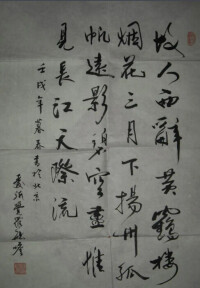 故人西辭黄鶴楼
烟花三月下揚州孤
帆遠影碧空盡惟
見長江天際流
壬戌年暮春书於北京
爱新覺羅